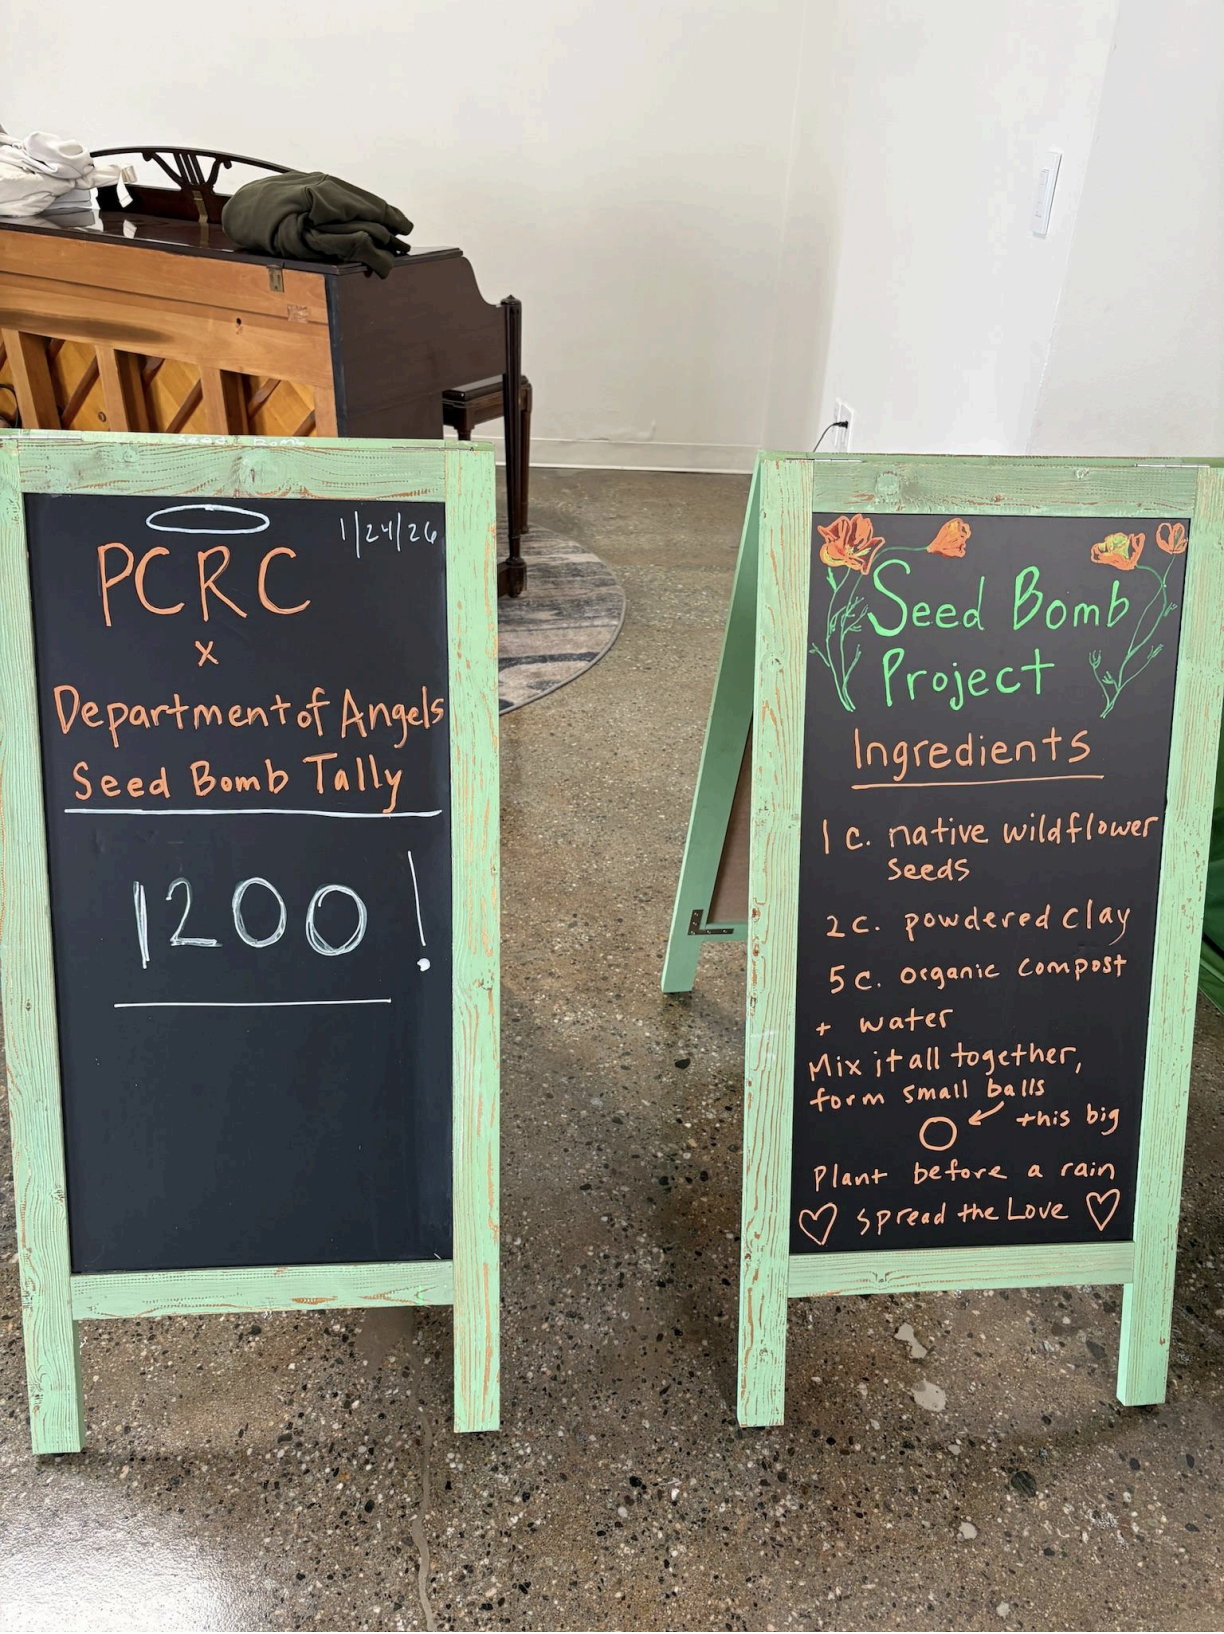 seed Bomb
1/24/26
PCRC
x
Department of Angels
Seed Bomb Tally
1200!
Seed Bomb
Project
Ingredients
1 c. native wildflower
seeds
2 c. powdered clay
5 c. organic compost
+ water
Mix it all together,
form small balls
this big
Plant before a rain
♡ spread the Love ♡